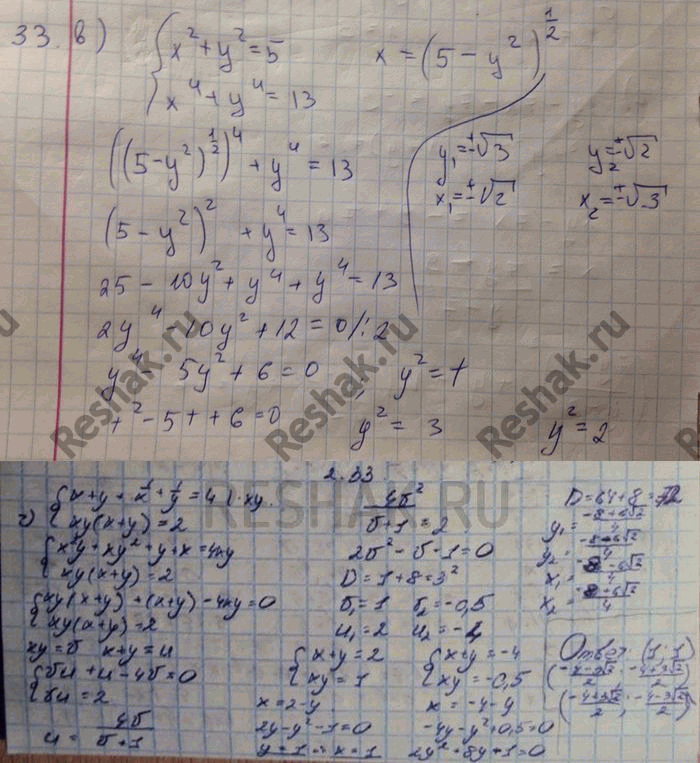 33. в) { x² + y² = 5
x⁴ + y⁴ = 13
x = (5 - y²)^(1/2)
((5-y²)^(1/2))⁴ + y⁴ = 13
(5 - y²)² + y⁴ = 13
25 - 10y² + y⁴ + y⁴ = 13
2y⁴ - 10y² + 12 = 0 /: 2
y⁴ - 5y² + 6 = 0, y² = t
t² - 5t + 6 = 0
y² = 3 y² = 2
y₁ = ±√3 y₂ = ±√2
x₁ = ±√2 x₂ = ±√3
Reshak.ru
Reshak.ru
Reshak.ru
RESHAK.RU
2.33
г) { x + y + 1/x + 1/y = 4 | · xy
xy(x+y) = 2
{ x²y + xy² + y + x = 4xy
xy(x+y) = 2
{ xy(x+y) + (x+y) - 4xy = 0
xy(x+y) = 2
xy = б x+y = u
{ бu + u - 4б = 0
бu = 2
u = 4б/(б+1)
4б²/(б+1) = 2
2б² - б - 1 = 0
D = 1 + 8 = 3²
б₁ = 1 б₂ = -0,5
u₁ = 2 u₂ = -4
{ x+y = 2
xy = 1
x = 2 - y
2y - y² - 1 = 0
y = 1 x = 1
{ x+y = -4
xy = -0,5
x = -4 - y
-4y - y² + 0,5 = 0
2y² + 8y + 1 = 0
D = 64 + 8 = 72
y₁ = (-8+6√2)/4
y₂ = (-8-6√2)/4
x₁ = (-8-6√2)/4
x₂ = (-8+6√2)/4
Ответ: (1; 1)
(-4-3√2)/2; (-4+3√2)/2
(-4+3√2)/2; (-4-3√2)/2